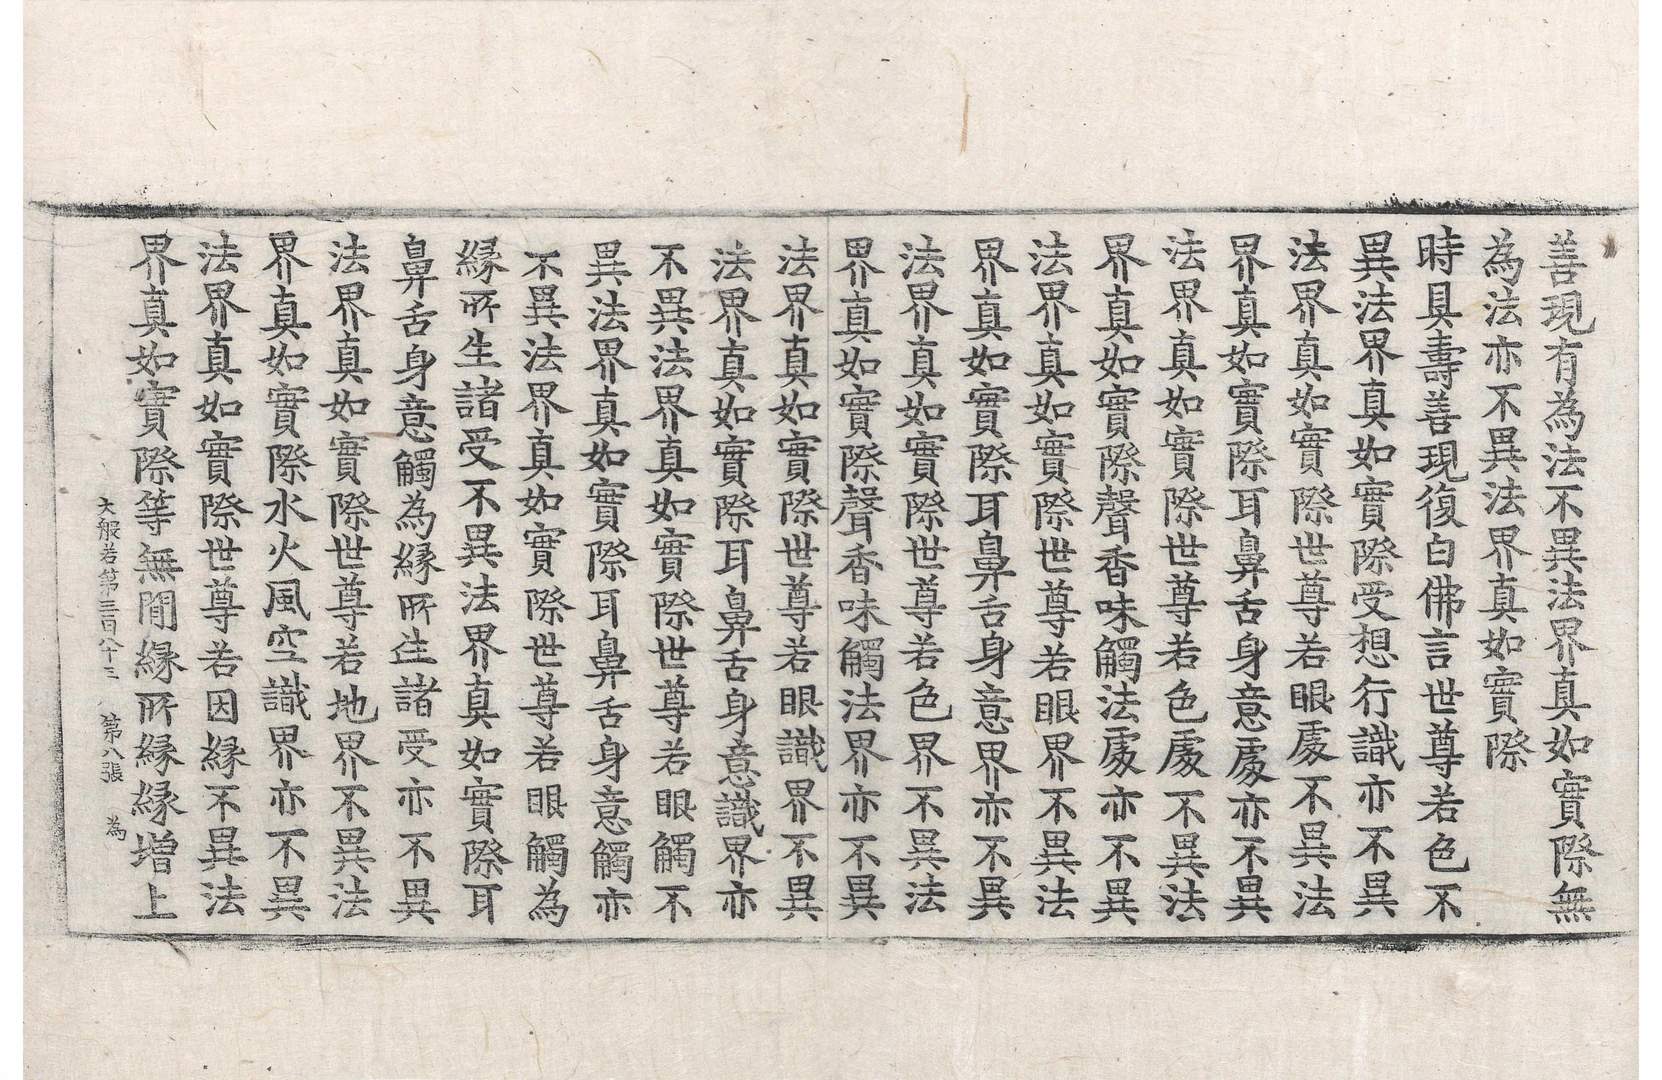 善現有為法不異法界真如實際無
為法亦不異法界真如實際
時具壽善現復白佛言世尊若色不
異法界真如實際受想行識亦不異
法界真如實際世尊若眼處不異法
界真如實際耳鼻舌身意處亦不異
法界真如實際世尊若色處不異法
界真如實際聲香味觸法處亦不異
法界真如實際世尊若眼界不異法
界真如實際耳鼻舌身意界亦不異
法界真如實際世尊若色界不異法
界真如實際聲香味觸法界亦不異
法界真如實際世尊若眼識界不異
法界真如實際耳鼻舌身意識界亦
不異法界真如實際世尊若眼觸不
異法界真如實際耳鼻舌身意觸亦
不異法界真如實際世尊若眼觸為
緣所生諸受不異法界真如實際耳
鼻舌身意觸為緣所生諸受亦不異
法界真如實際世尊若地界不異法
界真如實際水火風空識界亦不異
法界真如實際世尊若因緣不異法
界真如實際等無間緣所緣緣增上
大般若第三百八十三 第八張 為